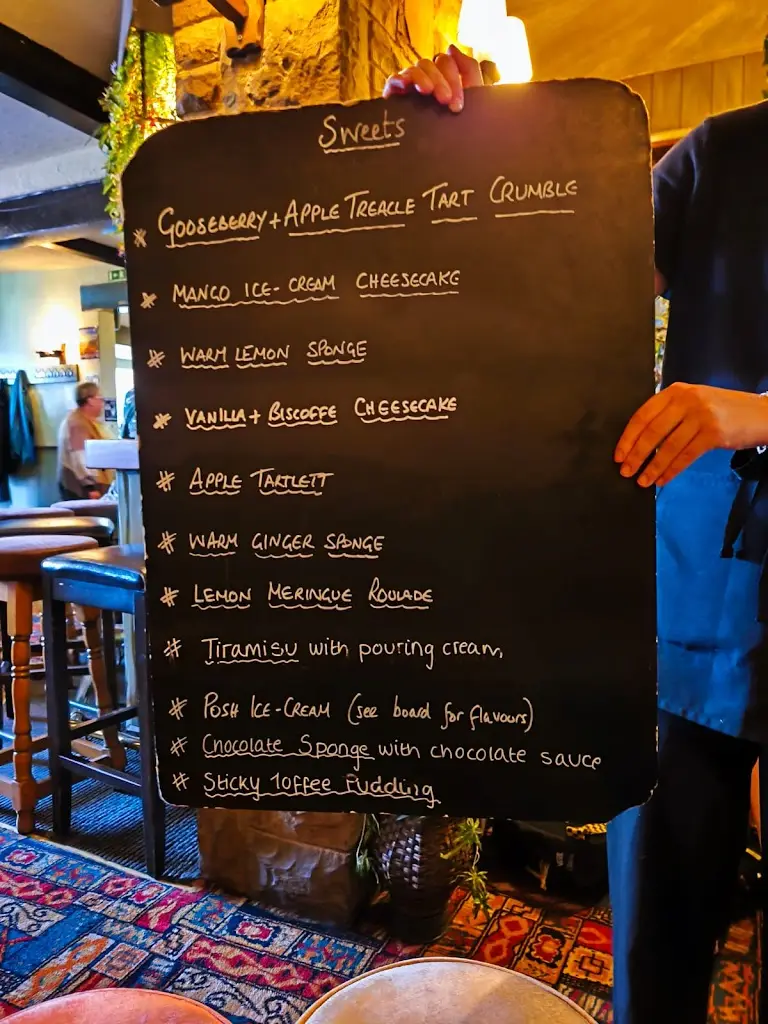 Sweets
* GOOSEBERRY + APPLE TREACLE TART CRUMBLE
* MANGO ICE-CREAM CHEESECAKE
* WARM LEMON SPONGE
* VANILLA + BISCOFFE CHEESECAKE
# APPLE TARTLETT
# WARM GINGER SPONGE
# LEMON MERINGUE ROULADE
# Tiramisu with pouring cream,
# POSH ICE-CREAM (see board for flavours)
# Chocolate Sponge with chocolate sauce
# Sticky Toffee Pudding